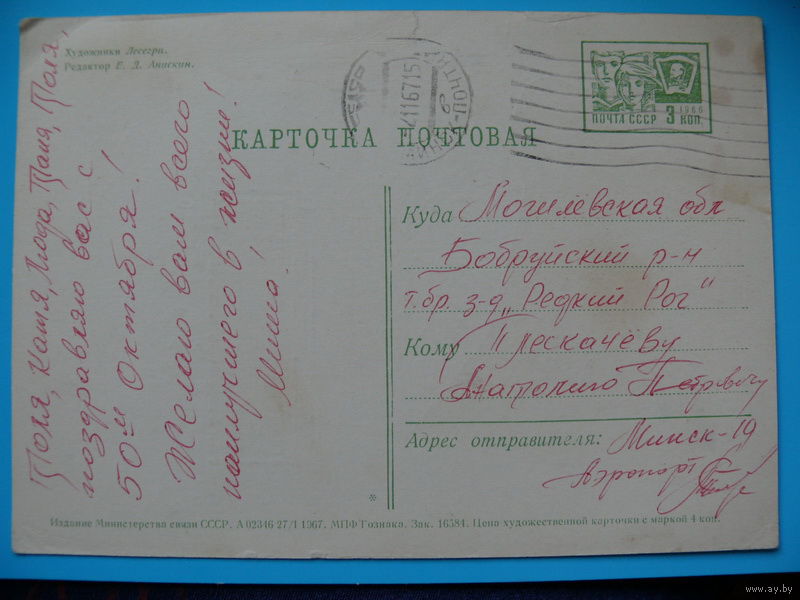 Художники Лесегри.
Редактор Е. Д. Анискин.
1966
ПОЧТА СССР 3 КОП.
КАРТОЧКА ПОЧТОВАЯ
Поля, Катя, Люда, Толя, Поля,
поздравляю вас с
50ой Октября!
Желаю вам всего
наилучшего в жизни!
Миша!
Куда Могилёвская обл
Бобруйский р-н
т.бр. з-д „Редкий Рог"
Кому Плескачёву
Анатолию Петровичу
Адрес отправителя: Минск-19
Аэропорт
Издание Министерства связи СССР. А 02346 27/I 1967. МПФ Гознака. Зак. 16584. Цена художественной карточки с маркой 4 коп.
www.ay.by